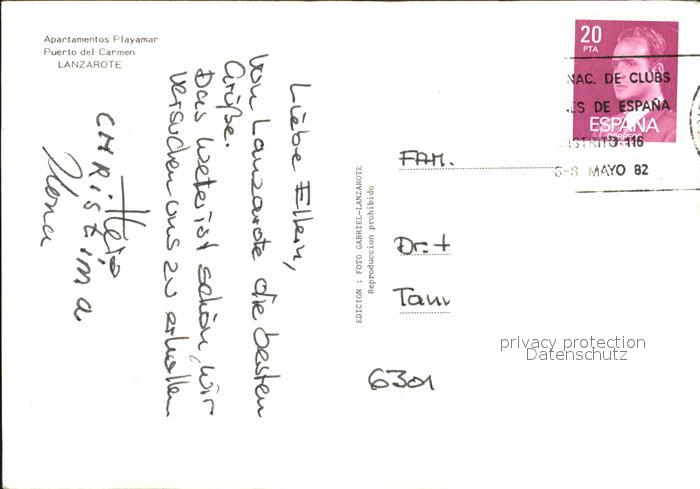 Apartamentos Playamar
Puerto del Carmen
LANZAROTE
Liebe Eltern,
von Lanzarote die besten
Grüße.
Das Wetter ist schön, wir
versuchen uns zu erholen
CHRistina
Ilona
EDICION : FOTO GABRIEL-LANZAROTE
Reproduccion prohibido
20
PTA
ESPAÑA
CORREOS
NAC. DE CLUBS
ES DE ESPAÑA
DISTRITO-116
6-8 MAYO 82
FAM.
Dr.
Tann
6301
privacy protection
Datenschutz